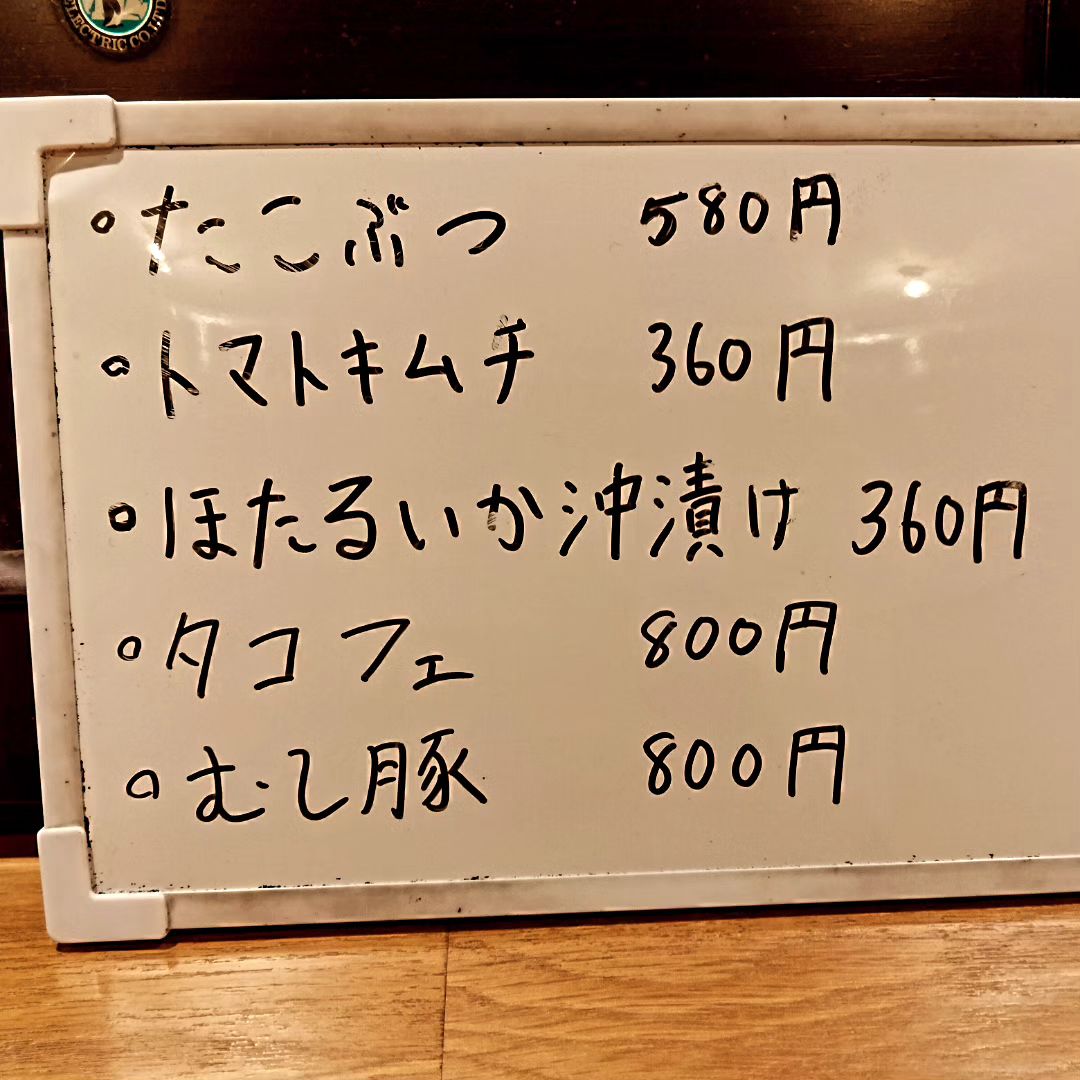 ELECTRIC CO.,LTD
。たこぶつ 580円
。トマトキムチ 360円
。ほたるいか沖漬け 360円
。タコフェ 800円
。むし豚 800円